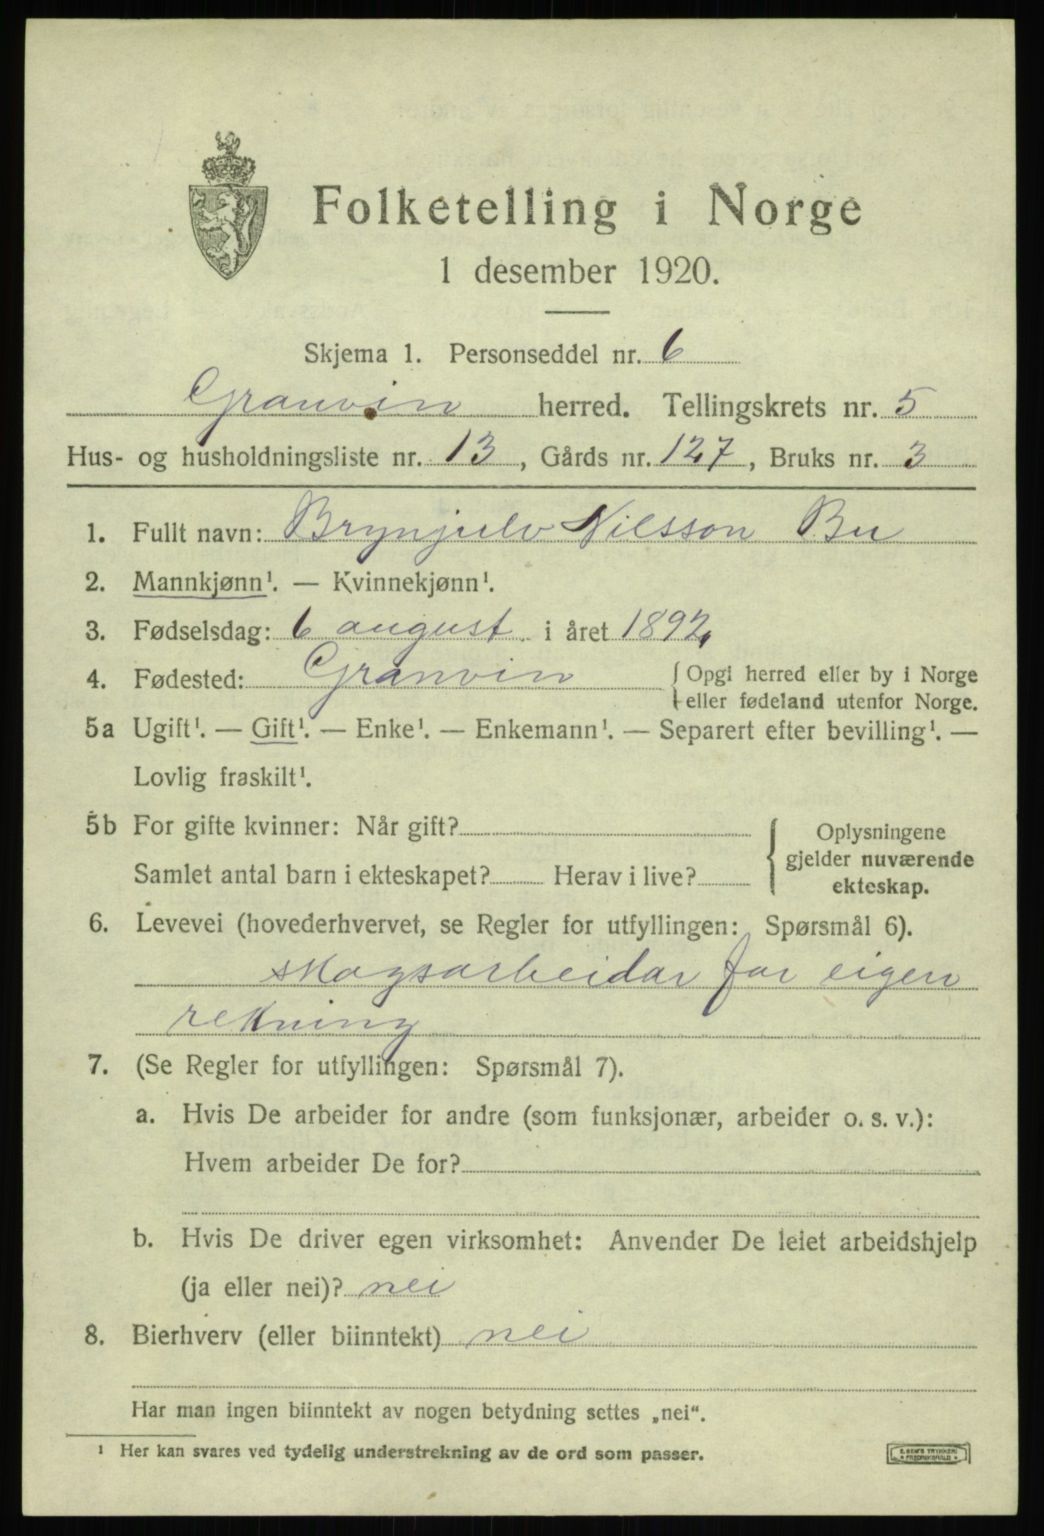 Folketelling i Norge
1 desember 1920.
Skjema 1. Personseddel nr. 6
Granvin herred. Tellingskrets nr. 5
Hus- og husholdningsliste nr. 13, Gårds nr. 127, Bruks nr. 3
1. Fullt navn: Brynjulv Nilsson Bu
2. Mannkjønn¹. — Kvinnekjønn¹.
3. Fødselsdag: 6 august i året 1892.
4. Fødested: Granvin { Opgi herred eller by i Norge
eller fødeland utenfor Norge.
5a Ugift¹. — Gift¹. — Enke¹. — Enkemann¹. — Separert efter bevilling¹. —
Lovlig fraskilt¹.
5b For gifte kvinner: Når gift?
Samlet antal barn i ekteskapet? Herav i live?
{ Oplysningene
gjelder nuværende
ekteskap.
6. Levevei (hovederhvervet, se Regler for utfyllingen: Spørsmål 6).
skogsarbeidar for eigen
rekning
7. (Se Regler for utfyllingen: Spørsmål 7).
a. Hvis De arbeider for andre (som funksjonær, arbeider o. s. v.):
Hvem arbeider De for?
b. Hvis De driver egen virksomhet: Anvender De leiet arbeidshjelp
(ja eller nei)? nei
8. Bierhverv (eller biinntekt) nei
Har man ingen biinntekt av nogen betydning settes „nei“.
¹ Her kan svares ved tydelig understrekning av de ord som passer.